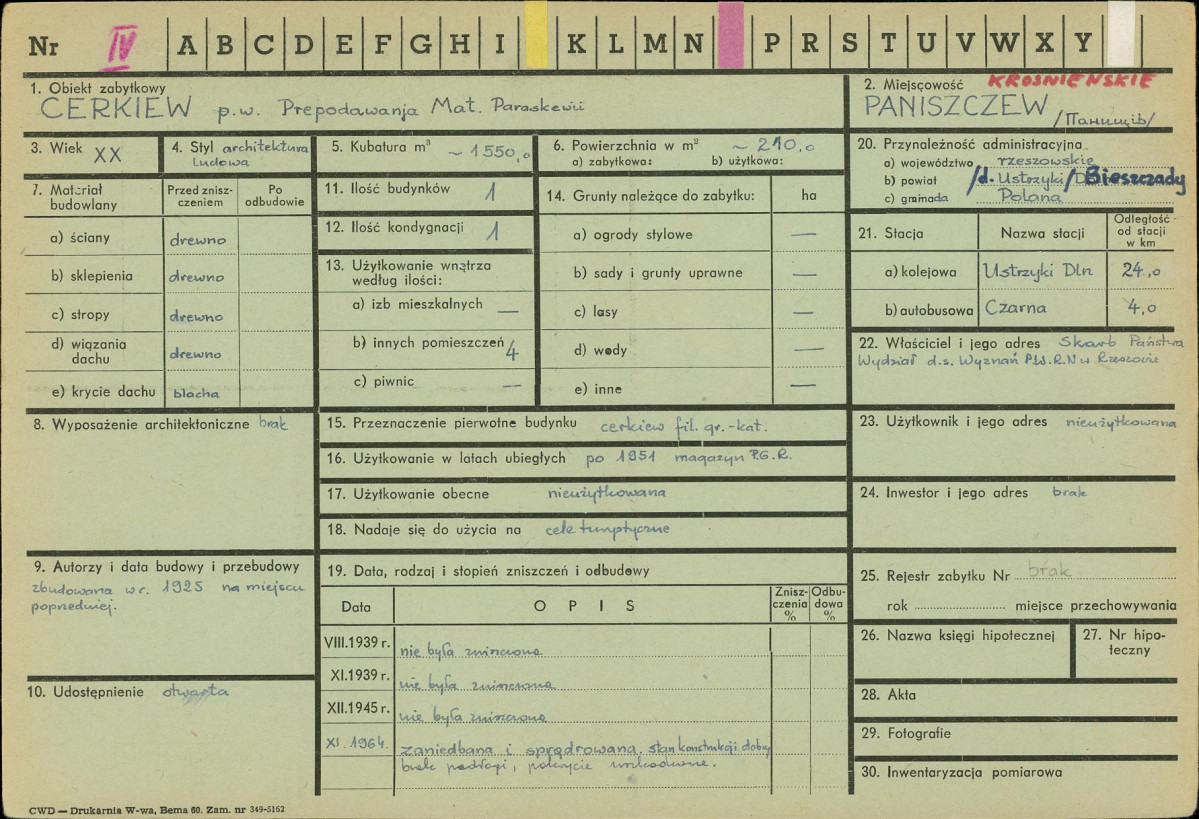 Nr IV A B C D E F G H I K L M N P R S T U V W X Y
1. Obiekt zabytkowy
CERKIEW p.w. Prepodawanja Mat. Paraskewii
2. Miejscowość KROŚNIEŃSKIE
PANISZCZEW
/Паищів/
3. Wiek XX
4. Styl architektura
ludowa
5. Kubatura m³
~ 1550,0
6. Powierzchnia w m² ~ 210,0
a) zabytkowa: b) użytkowa:
20. Przynależność administracyjna
a) województwo rzeszowskie
b) powiat /d. Ustrzyki/ Bieszczady
c) gromada Polana
7. Materiał
budowlany
Przed znisz-
czeniem
Po
odbudowie
a) ściany drewno
b) sklepienia drewno
c) stropy drewno
d) wiązania
dachu drewno
e) krycie dachu blacha
11. Ilość budynków 1
12. Ilość kondygnacji 1
13. Użytkowanie wnętrza
według ilości:
a) izb mieszkalnych —
b) innych pomieszczeń 4
c) piwnic —
14. Grunty należące do zabytku: ha
a) ogrody stylowe —
b) sady i grunty uprawne —
c) lasy —
d) wody —
e) inne —
21. Stacja Nazwa stacji
Odległość
od stacji
w km
a) kolejowa Ustrzyki Dln 24,0
b) autobusowa Czarna 4,0
22. Właściciel i jego adres Skarb Państwa
Wydział d.s. Wyznań P.W.R.N w Rzeszowie
8. Wyposażenie architektoniczne brak
15. Przeznaczenie pierwotne budynku cerkiew fil. gr.-kat.
16. Użytkowanie w latach ubiegłych po 1951 magazyn P.G.R.
17. Użytkowanie obecne nieużytkowana
18. Nadaje się do użycia na cele turystyczne
23. Użytkownik i jego adres nieużytkowana
24. Inwestor i jego adres brak
9. Autorzy i data budowy i przebudowy
zbudowana w r. 1925 na miejscu
poprzedniej.
10. Udostępnienie otwarta
19. Data, rodzaj i stopień zniszczeń i odbudowy
Data OPIS
Znisz-
czenia
%
Odbu-
dowa
%
VIII.1939 r. nie była zniszczona
XI.1939 r. nie była zniszczona
XII.1945 r. nie była zniszczona
XI.1964. zaniedbana i sprądrowana. stan konstrukcji dobry
brak podłogi, pokrycie uszkodzone.
25. Rejestr zabytku Nr brak
rok miejsce przechowywania
26. Nazwa księgi hipotecznej
27. Nr hipo-
teczny
28. Akta
29. Fotografie
30. Inwentaryzacja pomiarowa
CWD — Drukarnia W-wa, Bema 60. Zam. nr 349-5162